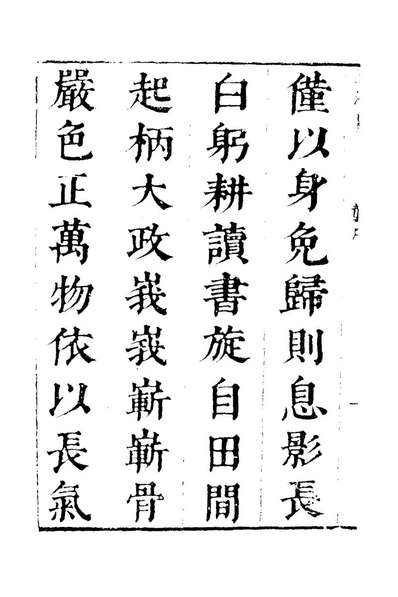 僅以身免歸則息影長
白躬耕讀書旋自田間
起柄大政峩峩嶄嶄骨
嚴色正萬物依以長氣